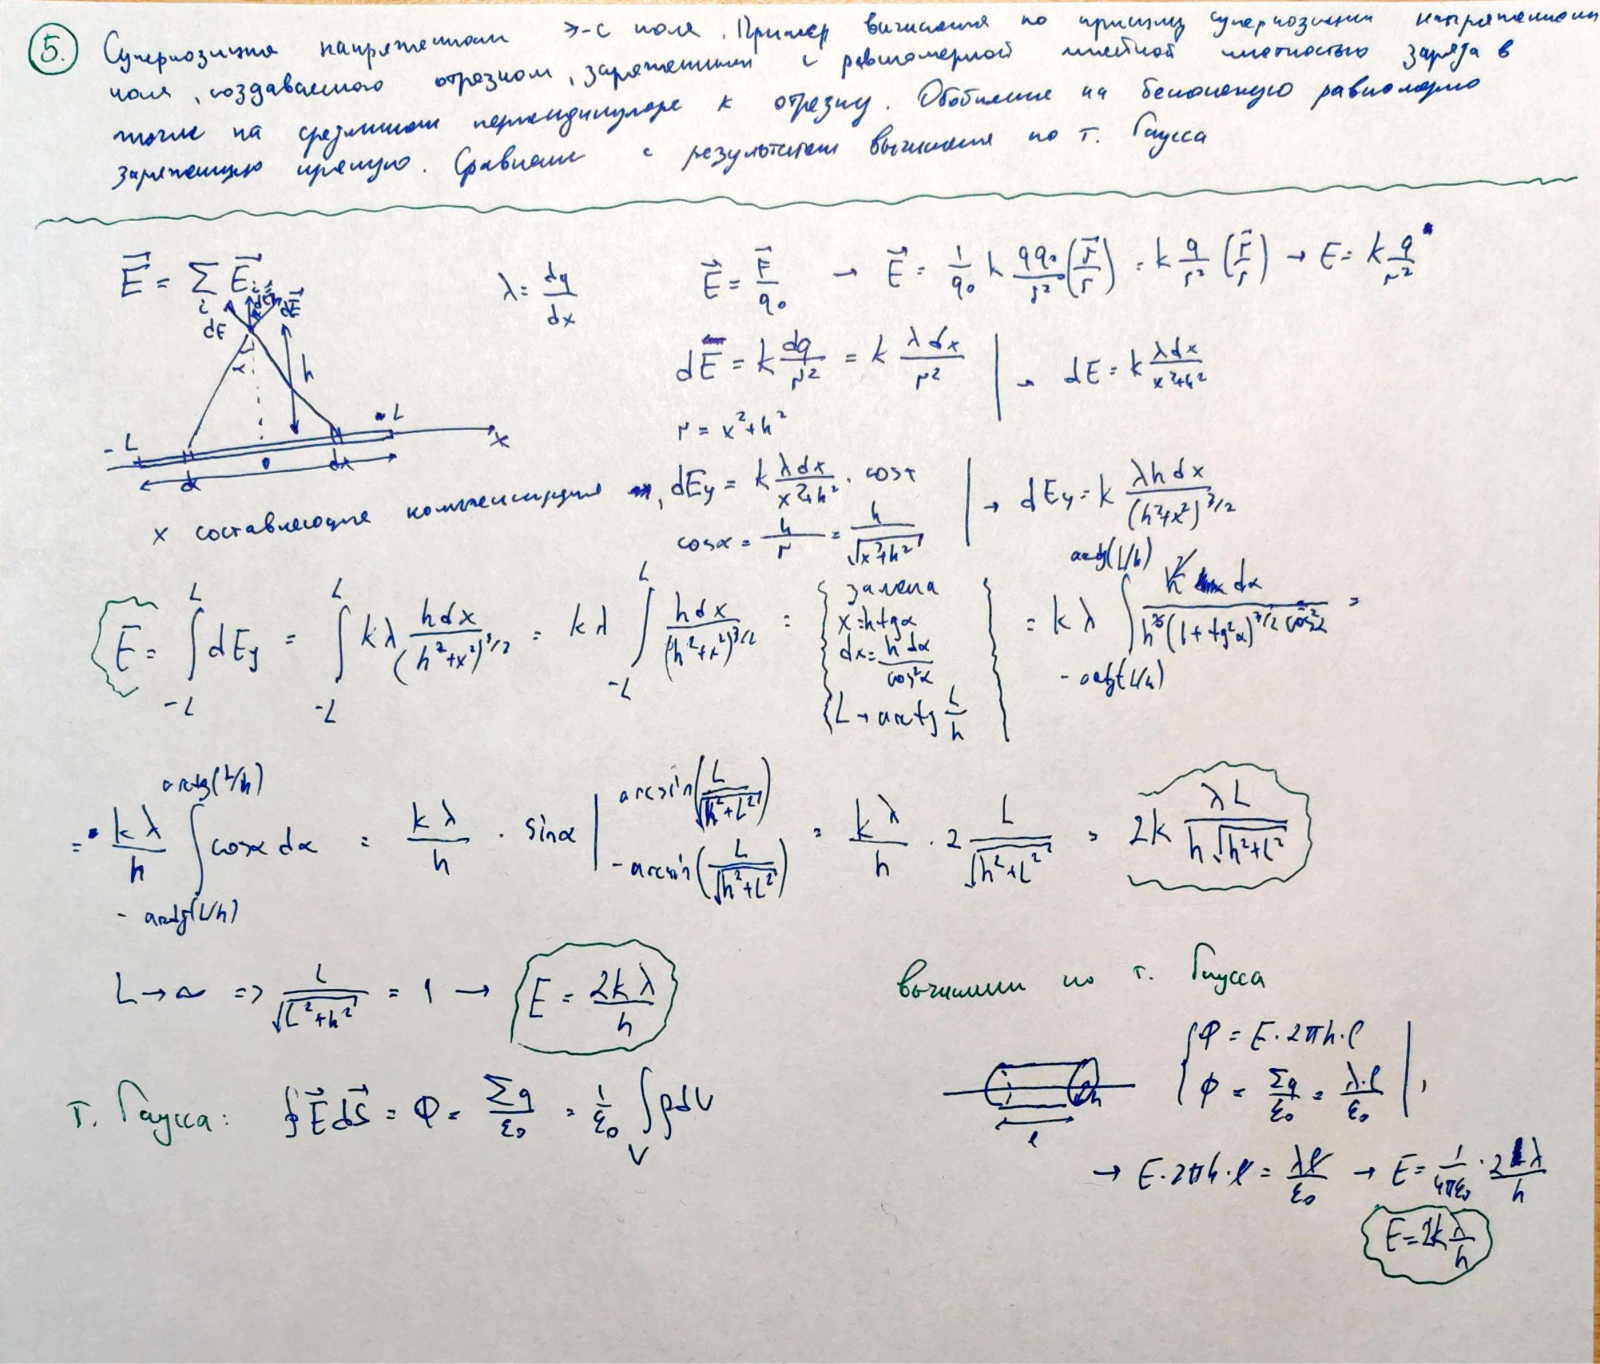 5. Суперпозиция напряженности э-с поля. Пример вычисления по принципу суперпозиции напряженности
поля, создаваемого отрезком, заряженным с равномерной линейной плотностью заряда в
точке на срединном перпендикуляре к отрезку. Обобщение на бесконечную равномерно
заряженную прямую. Сравнение с результатом вычисления по т. Гаусса
E⃗ = Σ_i E⃗_i
λ = dq/dx
E⃗ = F⃗/q₀ → E⃗ = 1/q₀ k qq₀/r² (r⃗/r) = k q/r² (r⃗/r) → E = k q/r²
dE dE⃗
α h
-L L x
dx 0 dx
dE = k dq/r² = k λdx/r² | → dE = k λdx/(x²+h²)
r = x²+h²
x составляющие компенсируются → dEy = k λdx/(x²+h²) · cosα | → dEy = k λhdx/(h²+x²)^3/2
cosα = h/r = h/√(x²+h²)
E = ∫_{-L}^{L} dEy = ∫_{-L}^{L} kλ hdx/(h²+x²)^3/2 = kλ ∫_{-L}^{L} hdx/(h²+x²)^3/2 = { замена x = h tgα dx = h dα/cos²α L → arctg L/h } = kλ ∫_{-arctg(L/h)}^{arctg(L/h)} h² dα/(h³(1+tg²α)^3/2 cos²α) =
= kλ/h ∫_{-arctg(L/h)}^{arctg(L/h)} cosα dα = kλ/h · sinα |_{-arcsin(L/√(h²+L²))}^{arcsin(L/√(h²+L²))} = kλ/h · 2 L/√(h²+L²) = 2k λL/(h√(h²+L²))
L → ∞ => L/√(L²+h²) = 1 → E = 2kλ/h
Т. Гаусса: ∮E⃗dS⃗ = Φ = Σq/ε₀ = 1/ε₀ ∫_V ρdV
вычислим по т. Гаусса
h
l
{ Φ = E·2πh·l
Φ = Σq/ε₀ = λ·l/ε₀ |
→ E·2πh·l = λl/ε₀ → E = 1/4πε₀ · 2λ/h
E = 2k λ/h